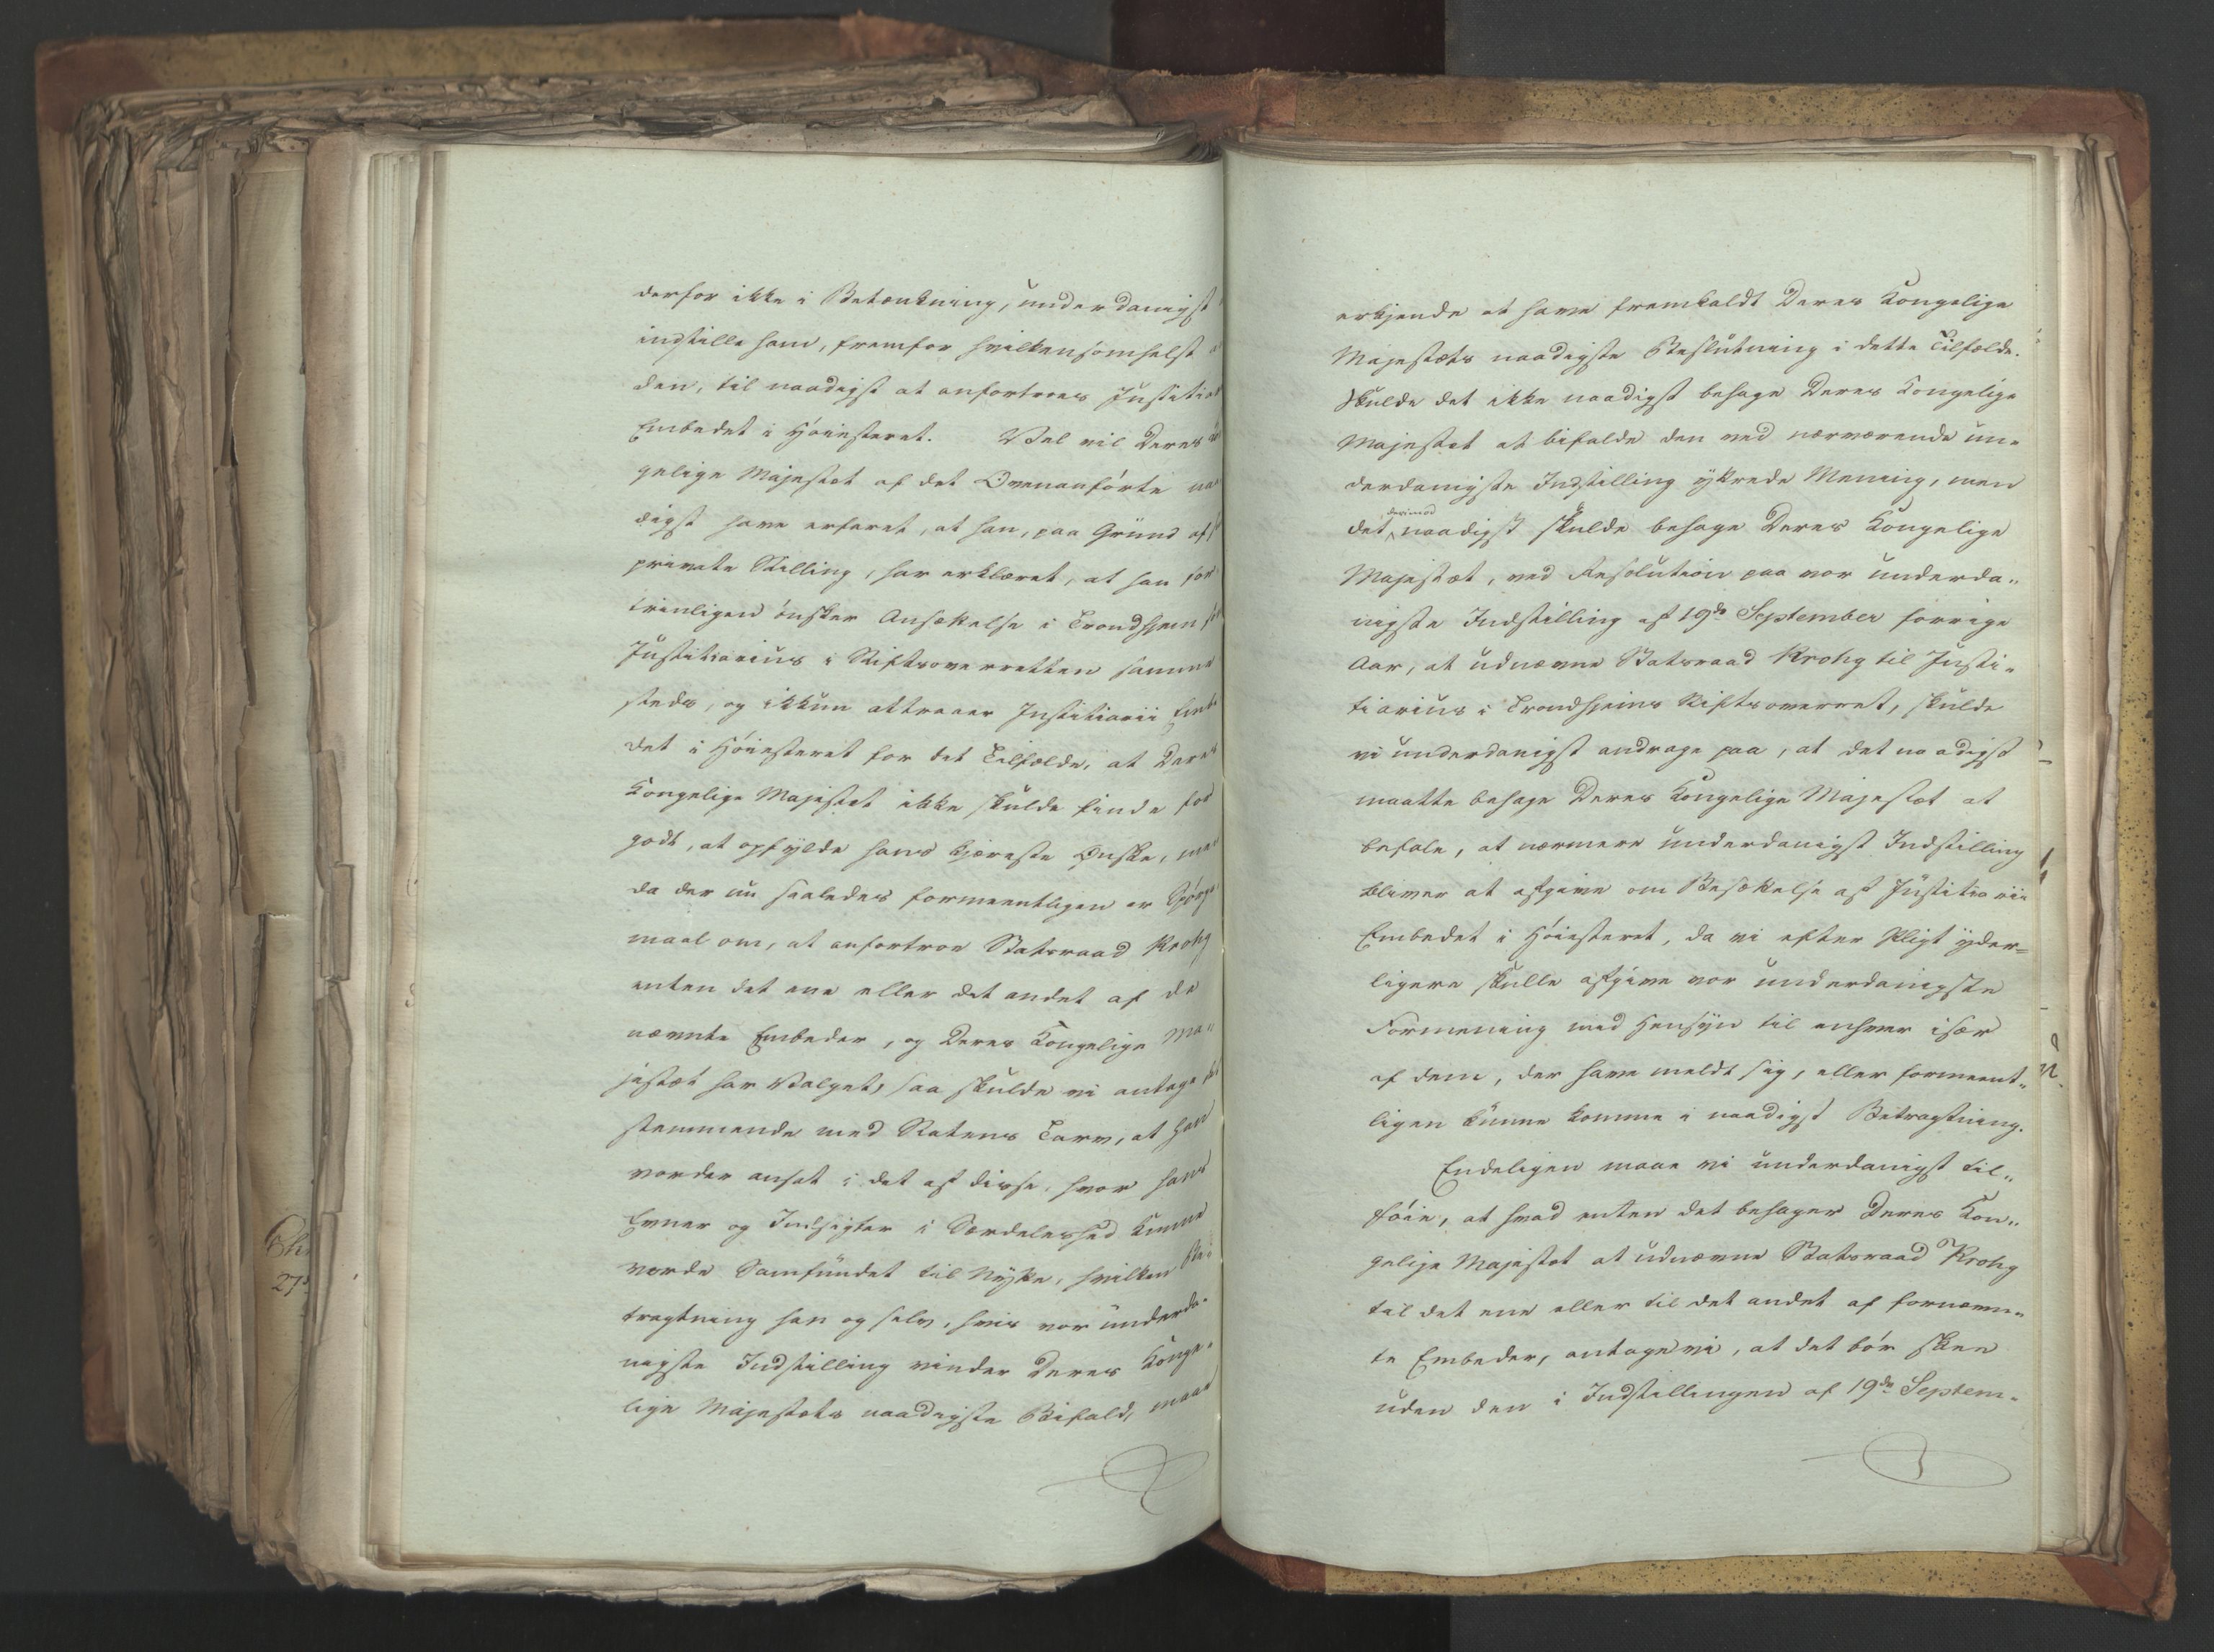 derfor ikke i Betænkning, underdanigst
indstille ham, fremfor hvilkensomhelst
den, til naadigst at anfortroes Justitia
Embedet i Høiesteret. Vel vil Deres
gelige Majestæt af det Ovenanførte naa
digst have erfaret, at han, paa Grund af
private Stilling, har erklæret, at han for
trinligen ønsker Ansættelse i Trondhjem
Justitiarius i Stiftsoverretten samme
steds, og ikkun attraaer Justitiarii Embe
det i Høiesteret for det Tilfælde, at Deres
Kongelige Majestæt ikke skulde finde for
godt, at opfylde hans kjæreste Ønske, men
da der nu saaledes formeentligen er Spørgs
maal om, at anfortroe Statsraad Krohg
enten det ene eller det andet af de
nævnte Embeder, og Deres Kongelige Ma„
jestæt har Valget, saa skulde vi antage
stemmende med Statens Tarv, at han
vorder ansat i det af disse, hvor hans
Evner og Indsigter i Særdeleshed kunne
vorde Samfundet til Nytte, hvilken Be„
tragtning han og selv, hvis vor underda„
nigste Indstilling vinder Deres Konge„
lige Majestæts naadigste Bifald, maae
erkjende at have fremkaldt Deres Kongelige
Majestæts naadigste Beslutning i dette Tilfælde.
Skulde det ikke naadigst behage Deres Kongelige
Majestæt at bifalde den ved nærværende un„
derdanigste Indstilling yttrede Mening, men
derimod
det naadigst skulde behage Deres Kongelige
Majestæt, ved Resolution paa vor underda„
nigste Indstilling af 19de September forrige
Aar, at udnævne Statsraad Krohg til Justi„
tiarius i Trondhjems Stiftsoverret, skulde
vi underdanigst andrage paa, at det naadigst
maatte behage Deres Kongelige Majestæt at
befale, at nærmere underdanigst Indstilling
bliver at afgive om Besættelse af Justitiarii
Embedet i Høiesteret, da vi efter Pligt yder„
ligere skulle afgive vor underdanigste
Formening med Hensyn til enhver især
af dem, der have meldt sig, eller formeent„
ligen kunne komme i naadigst Betragtning.
Endeligen maae vi underdanigst til„
føie, at hvad enten det behager Deres Kon„
gelige Majestæt at udnævne Statsraad Krohg
til det ene eller til det andet af fornævn„
te Embeder, antage vi, at det bør skee
uden den i Indstillingen af 19de Septem„